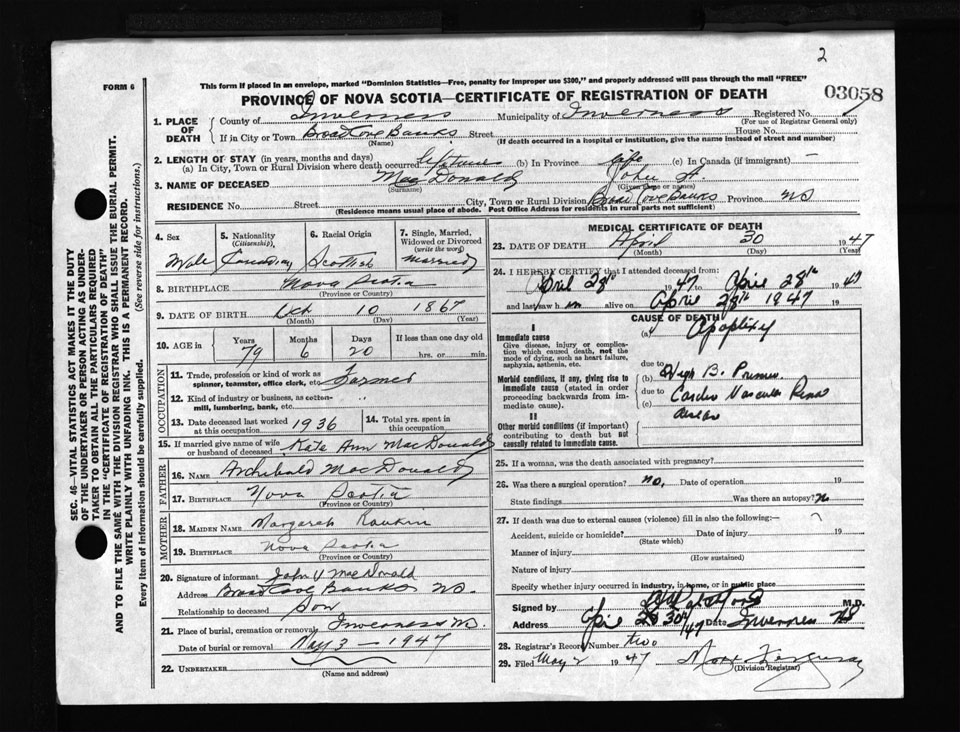 2
This form if placed in an envelope, marked "Dominion Statistics—Free, penalty for improper use $300," and properly addressed will pass through the mail "FREE"
FORM 6
PROVINCE OF NOVA SCOTIA—CERTIFICATE OF REGISTRATION OF DEATH
03058
1. PLACE OF DEATH
County of Inverness Municipality of Inverness Registered No.
(For use of Registrar General only)
If in City or Town Broad Cove Banks Street House No.
(Name) (If death occurred in a hospital or institution, give the name instead of street and number)
2. LENGTH OF STAY (in years, months and days)
(a) In City, Town or Rural Division where death occurred lifetime (b) In Province life (c) In Canada (if immigrant) —
3. NAME OF DECEASED MacDonald John A.
(Surname) (Given name or names)
RESIDENCE No. Street City, Town or Rural Division Broad Cove Banks Province NS
(Residence means usual place of abode. Post Office Address for residents in rural parts not sufficient)
4. Sex
Male
5. Nationality (Citizenship)
Canadian
6. Racial Origin
Scottish
7. Single, Married, Widowed or Divorced (write the word)
Married
8. BIRTHPLACE Nova Scotia
(Province or Country)
9. DATE OF BIRTH Oct 10 1867
(Month) (Day) (Year)
10. AGE in Years Months Days If less than one day old
79 6 20 hrs. or min.
OCCUPATION
11. Trade, profession or kind of work as spinner, teamster, office clerk, etc. Farmer
12. Kind of industry or business, as cotton-mill, lumbering, bank, etc. " "
13. Date deceased last worked at this occupation 1936
14. Total yrs. spent in this occupation
15. If married give name of wife or husband of deceased Kate Ann MacDonald
FATHER
16. NAME Archibald MacDonald
17. BIRTHPLACE Nova Scotia
(Province or Country)
MOTHER
18. MAIDEN NAME Margaret Rankin
19. BIRTHPLACE Nova Scotia
(Province or Country)
20. Signature of informant John V MacDonald
Address Broad Cove Banks NS.
Relationship to deceased Son
21. Place of burial, cremation or removal Inverness NS.
Date of burial or removal May 3 — 1947
22. UNDERTAKER
(Name and address)
MEDICAL CERTIFICATE OF DEATH
23. DATE OF DEATH April 30 1947
(Month) (Day) (Year)
24. I HEREBY CERTIFY that I attended deceased from:
April 28th 1947 to April 28th 1947
and last saw him alive on April 28th 1947 19
CAUSE OF DEATH
I
Immediate cause
Give disease, injury or complication which caused death, not the mode of dying, such as heart failure, asphyxia, asthenia, etc.
(a) Apoplexy
due to
Morbid conditions, if any, giving rise to immediate cause (stated in order proceeding backwards from immediate cause).
(b) High B. Pressure
due to Cardio Vascular Renal
(c)
II
Other morbid conditions (if important) contributing to death but not causally related to immediate cause.
25. If a woman, was the death associated with pregnancy?
26. Was there a surgical operation? no. Date of operation 19
State findings Was there an autopsy? no
27. If death was due to external causes (violence) fill in also the following:—
Accident, suicide or homicide? Date of injury 19
(State which)
Manner of injury
(How sustained)
Nature of injury
Specify whether injury occurred in industry, in home, or in public place
Signed by M.D.
Address Date Inverness NS
28. Registrar's Record Number two
29. Filed May 2 1947
(Division Registrar)
SEC. 46—VITAL STATISTICS ACT MAKES IT THE DUTY OF THE UNDERTAKER OR PERSON ACTING AS UNDERTAKER TO OBTAIN ALL THE PARTICULARS REQUIRED IN THE "CERTIFICATE OF REGISTRATION OF DEATH" AND TO FILE THE SAME WITH THE DIVISION REGISTRAR WHO SHALL ISSUE THE BURIAL PERMIT.
WRITE PLAINLY WITH UNFADING INK. THIS IS A PERMANENT RECORD.
Every item of information should be carefully supplied. (See reverse side for instructions.)